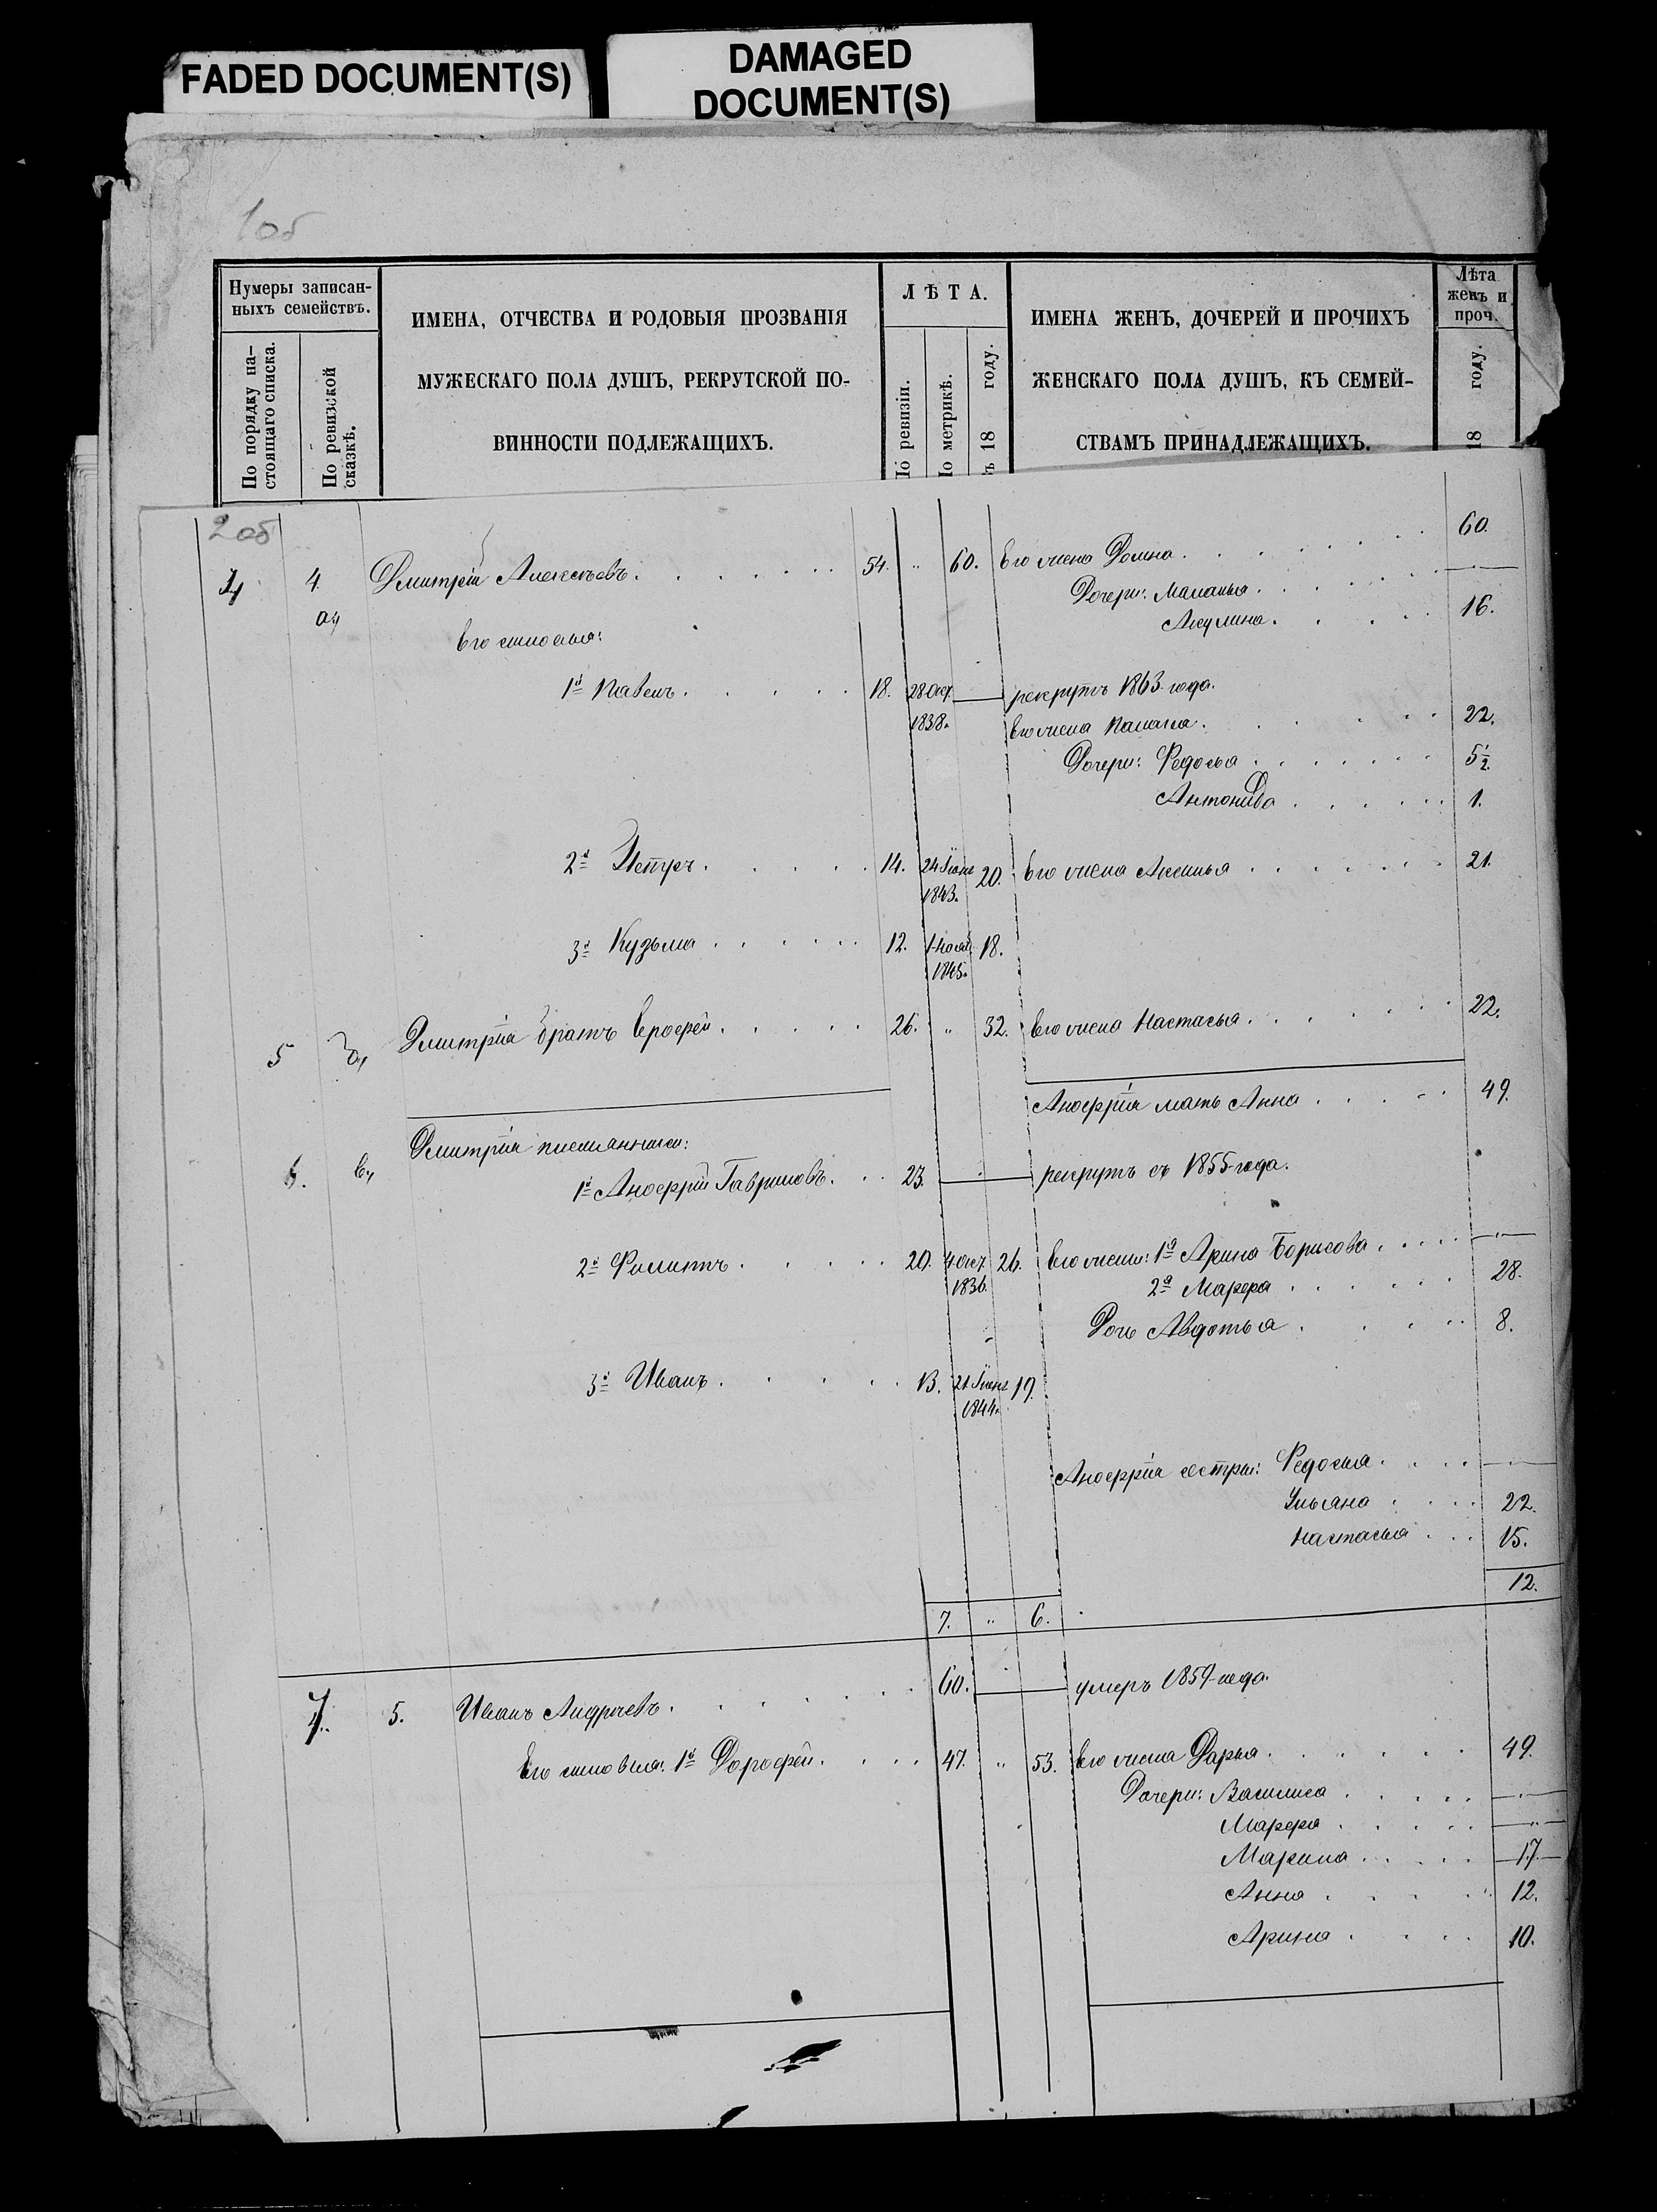 FADED DOCUMENT(S)
DAMAGED
DOCUMENT(S)
1об
Нумеры записан-
ныхъ семействъ.
По порядку на-
стоящаго списка.
По ревизской
сказкѣ.
ИМЕНА, ОТЧЕСТВА И РОДОВЫЯ ПРОЗВАНІЯ
МУЖЕСКАГО ПОЛА ДУШЪ, РЕКРУТСКОЙ ПО-
ВИННОСТИ ПОДЛЕЖАЩИХЪ.
ЛѢТА.
По ревизіи.
По метрикѣ.
ъ 18 году.
ИМЕНА ЖЕНЪ, ДОЧЕРЕЙ И ПРОЧИХЪ
ЖЕНСКАГО ПОЛА ДУШЪ, КЪ СЕМЕЙ-
СТВАМЪ ПРИНАДЛЕЖАЩИХЪ.
Лѣта
женъ и
проч.
18 году.
2об
4 4. Дмитрій Алексѣевъ. 54. " 60. Его жена Домна. 60.
а, Дочери: Маланья. — " —
Акулина. 16.
Его сыновья:
1й Павелъ. 18. 28 Окт. 1838. — рекрутъ 1863 года.
Его жена Палагея. 22.
Дочери: Федосья 5½.
Антонида 1.
2й Петръ. 14. 24 Іюня 1843. 20. Его жена Аксинья 21.
3й Кузьма 12. 1 Нояб. 1845. 18.
5 б, Дмитрія братъ Ерофей. 26. " 32. Его жена Настасья. 22.
Аноффрія мать Анна 49.
6. в, Дмитрія племянники:
1й Аноффрій Гавриловъ. 23. — рекрутъ съ 1855 года.
2й Филиппъ 20. 4 Окт. 1836. 26. Его жены: 1я Арина Борисова — " —
2я Марфа 28.
Дочь Авдотья 8.
3й Иванъ. 13. 21 Іюня 1844. 19.
Аноффрія сестры: Федосья. — " —
Ульяна 22.
Настасья 15.
12.
7. " 6.
7. 5. Иванъ Андреевъ. 60. — умеръ 1859 года.
Его сыновья: 1й Дорофей. 47. " 53. Его жена Дарья. 49.
Дочери: Василиса — " —
Марфа — " —
Марина 17.
Анна 12.
Арина 10.